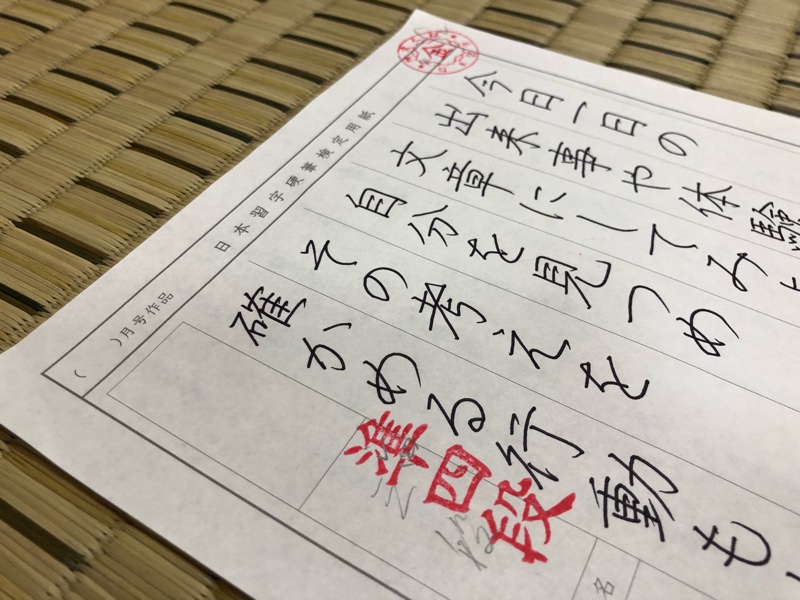 金
今日一日の
出来事や体験
文章にしてみ
自分を見つめ
その考えを
確かめる行動も
日本習字硬筆検定用紙
( )月号作品
準四段
名